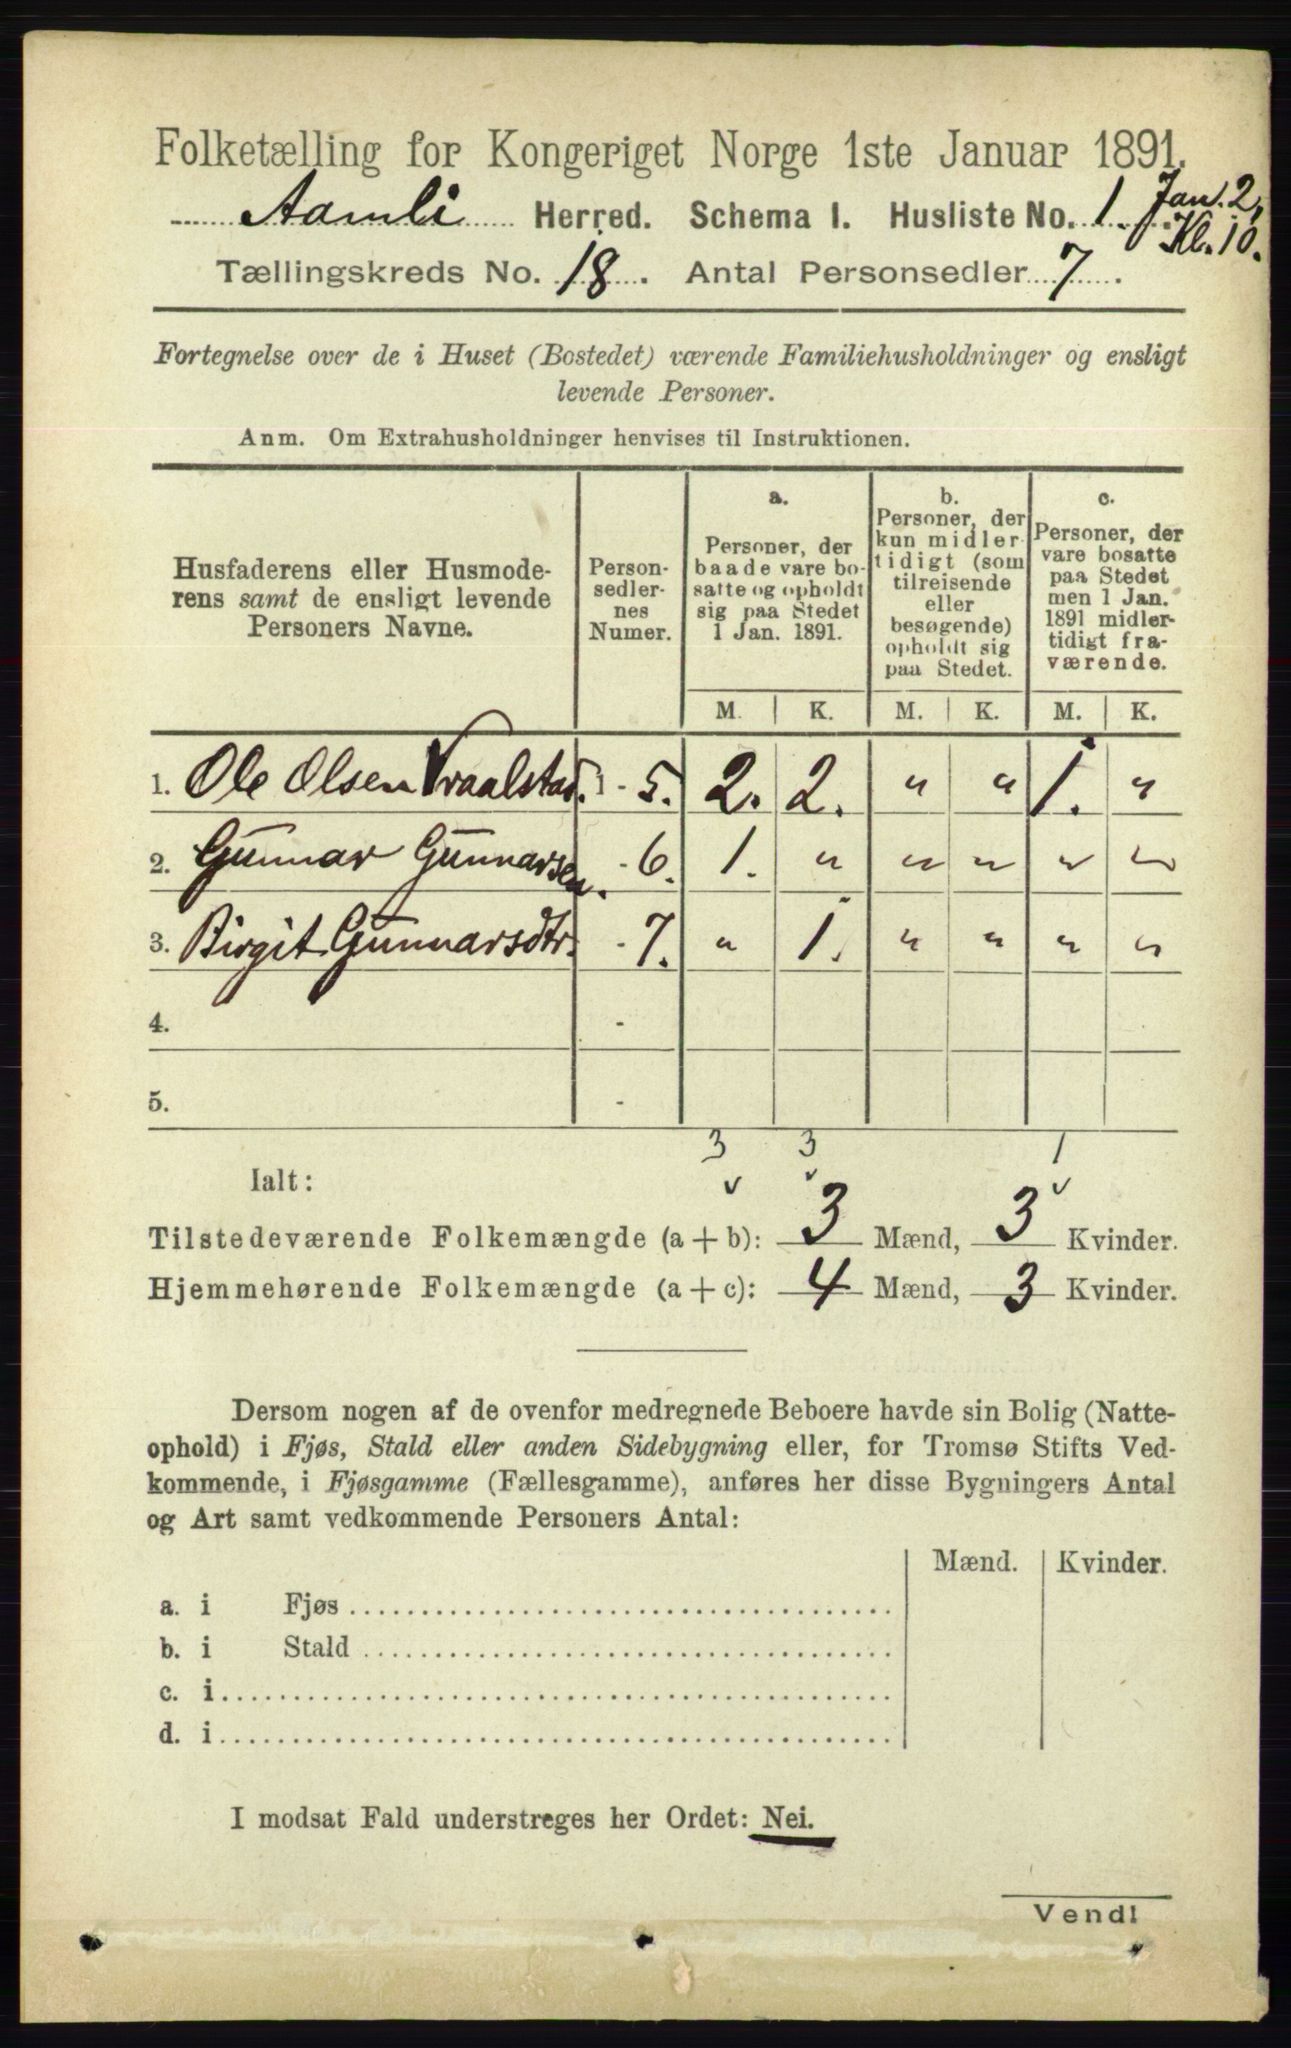 Folketælling for Kongeriget Norge 1ste Januar 1891.
Aamli Herred. Schema I. Husliste No. 1. Jan. 2,
Kl. 10.
Tællingskreds No. 18. Antal Personsedler 7.
Fortegnelse over de i Huset (Bostedet) værende Familiehusholdninger og ensligt
levende Personer.
Anm. Om Extrahusholdninger henvises til Instruktionen.
Husfaderens eller Husmode-
rens samt de ensligt levende
Personers Navne.
Person-
sedler-
nes
Numer.
a.
Personer, der
baade vare bo-
satte og opholdt
sig paa Stedet
1 Jan. 1891.
b.
Personer, der
kun midler-
tidigt (som
tilreisende
eller
besøgende)
opholdt sig
paa Stedet.
c.
Personer, der
vare bosatte
paa Stedet
men 1 Jan.
1891 midler-
tidigt fra-
værende.
M. K. M. K. M. K.
1. Ole Olsen Vraalstad. 1 - 5. 2. 2. " " 1. "
2. Gunnar Gunnarsen. - 6. 1. " " " " "
3. Birgit Gunnarsdtr. - 7. " 1. " " " "
4. -
5. -
3 3 1
Ialt: v v v
Tilstedeværende Folkemængde (a + b): 3 Mænd, 3 Kvinder.
Hjemmehørende Folkemængde (a + c): 4 Mænd, 3 Kvinder.
Dersom nogen af de ovenfor medregnede Beboere havde sin Bolig (Natte-
ophold) i Fjøs, Stald eller anden Sidebygning eller, for Tromsø Stifts Ved-
kommende, i Fjøsgamme (Fællesgamme), anføres her disse Bygningers Antal
og Art samt vedkommende Personers Antal:
Mænd. Kvinder.
a. i Fjøs
b. i Stald
c. i
d. i
I modsat Fald understreges her Ordet: Nei.
Vend!